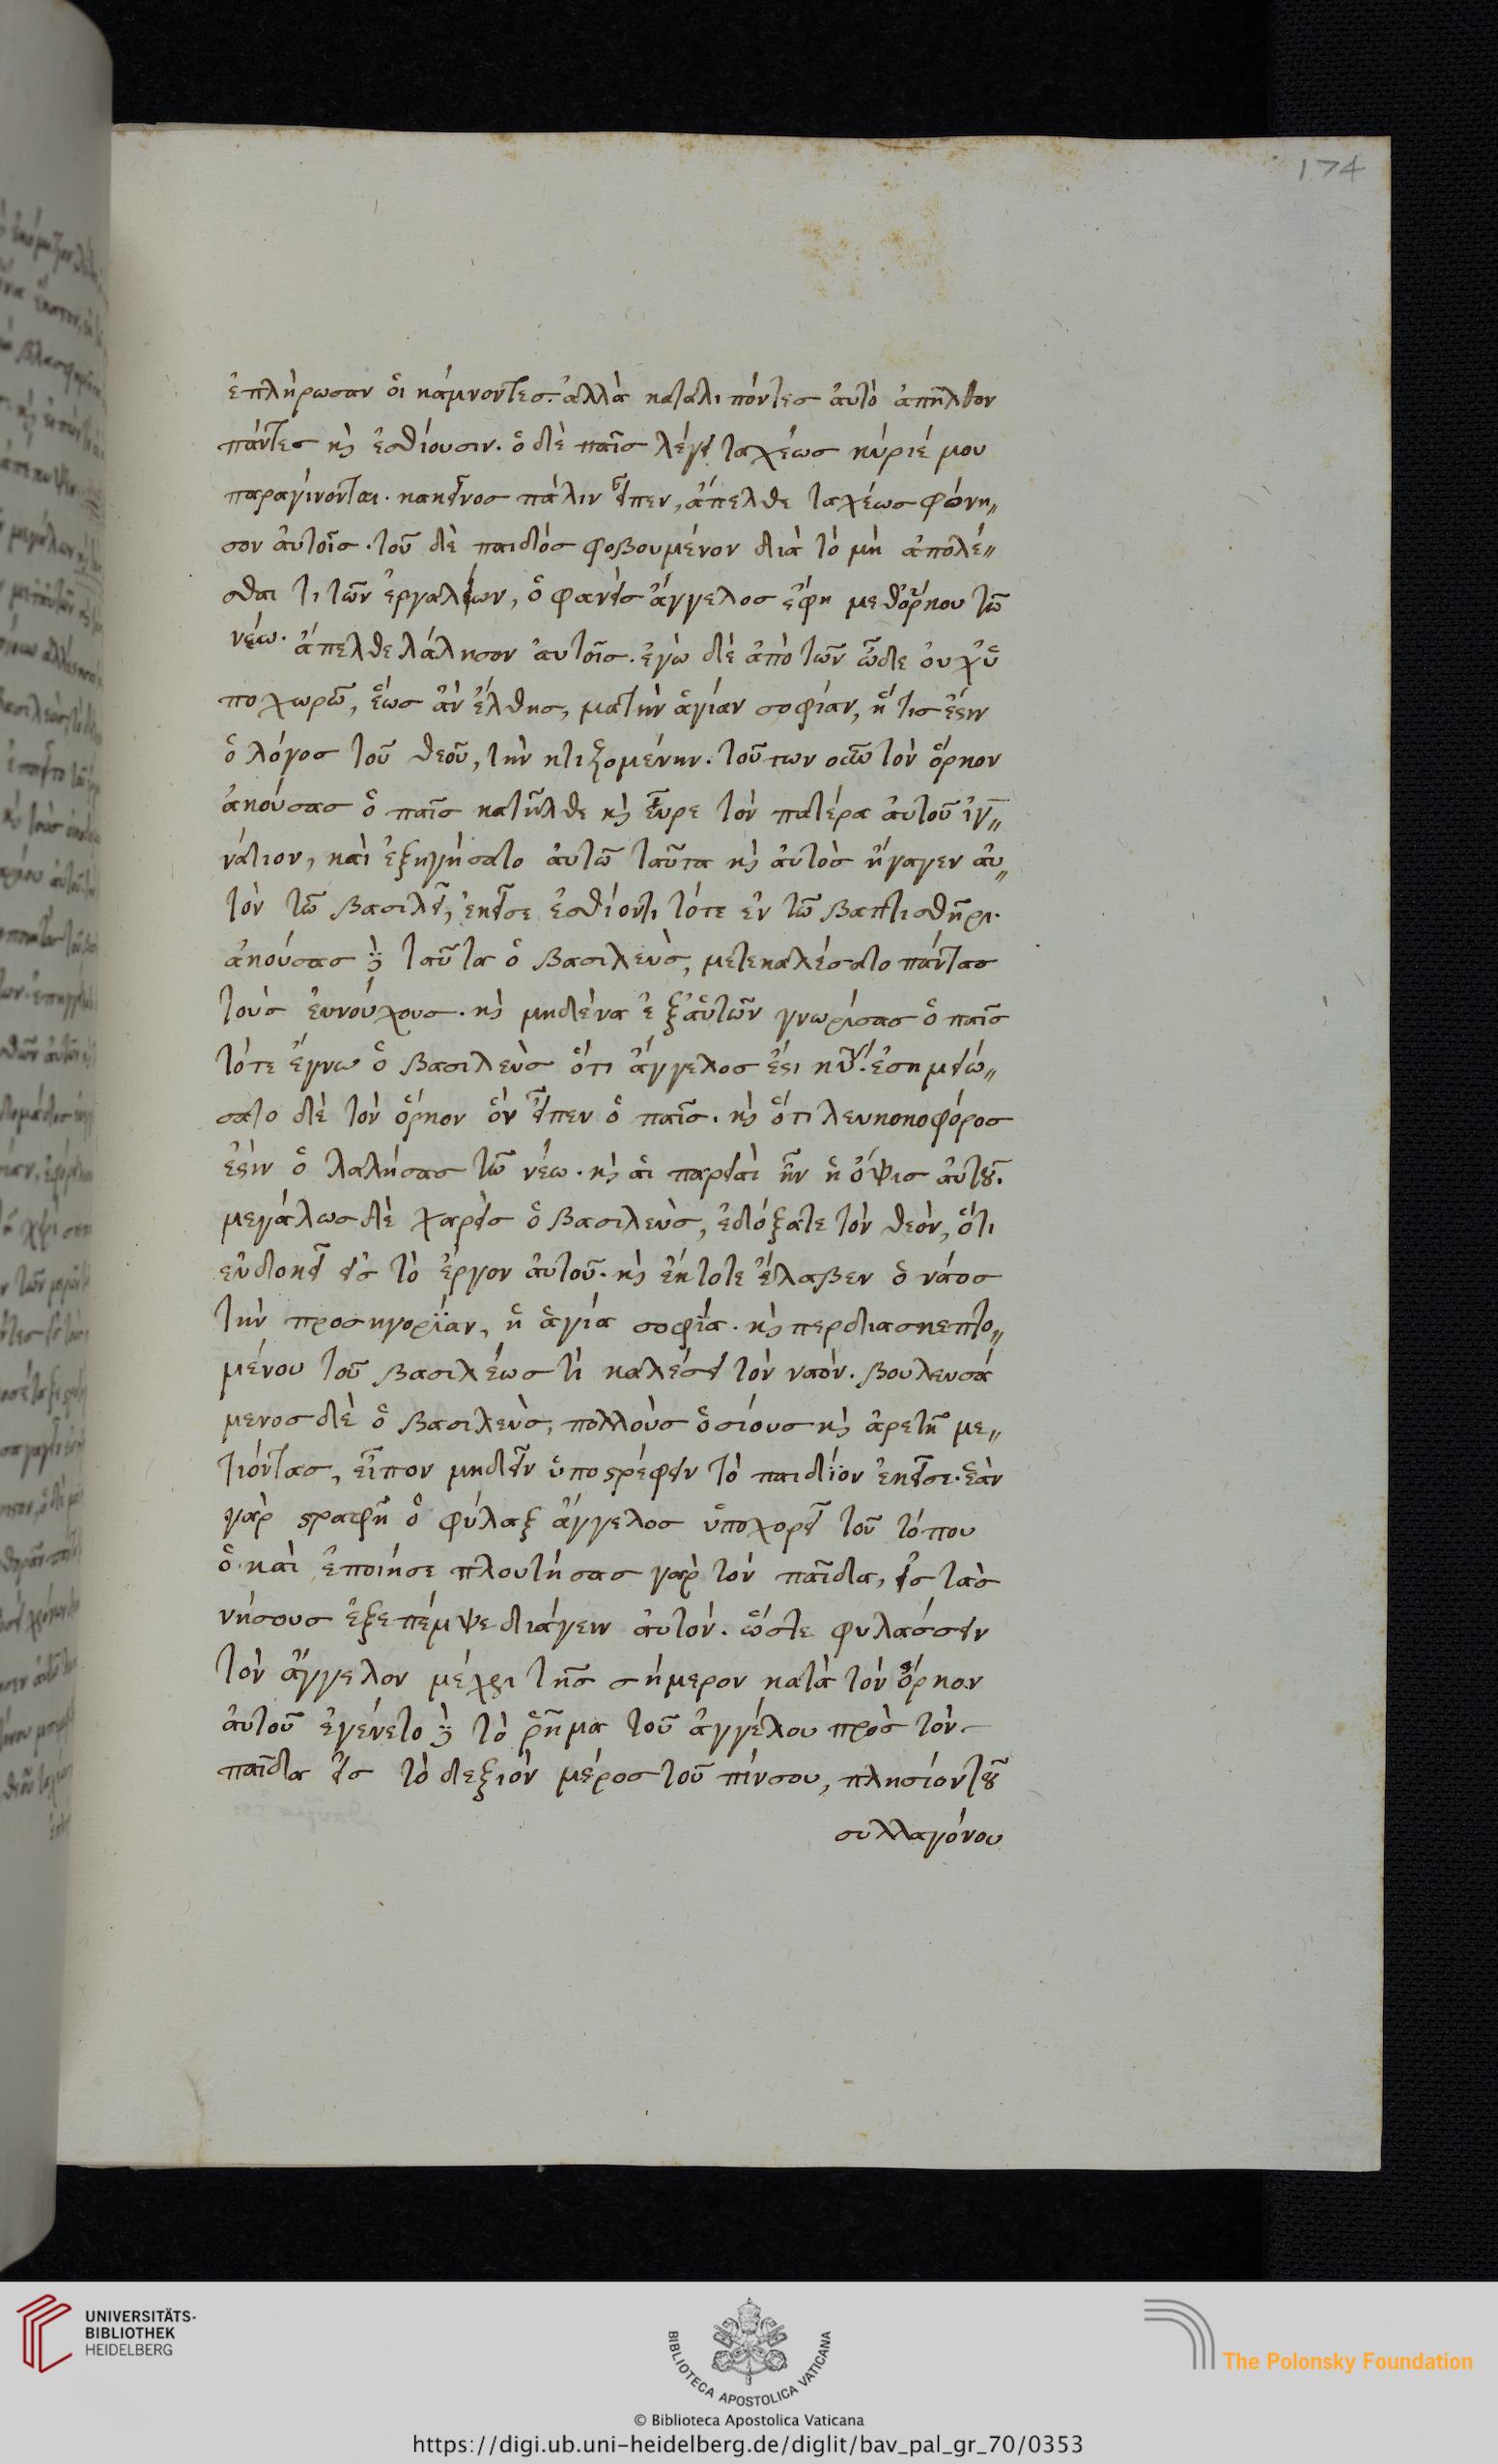 174
ἐπλήρωσαν ὁι κάμνοντες. ἀλλὰ καταλιπόντες ἀυτὸ ἀπῆλθον
πάντες κὶ ἐσθίουσιν. ὁ δὲ παῖς λέγει ταχέως κύριέ μου
παραγίνονται. κακεῖνος πάλιν εἶπεν, ἄπελθε ταχέως φώνη„
σον ἀυτοῖς. τοῦ δὲ παιδός φοβουμένου διὰ τὸ μὴ απολέ„
σθαι τι τῶν ἐργαλείων, ὁ φανεὶς ἄγγελος ἐφη μεθὅρκου τῶ
νέω. ἄπελθε λάλησον ἀυτοῖς. ἐγὼ δὲ ἀπὸ τῶν ὧδε ὀυχ ὑ
ποχωρῶ, ἕως ἂν ἔλθης, ματὴν ἁγίαν σοφίαν, ἥτις ἐστιν
ὁ λόγος τοῦ θεοῦ, τὴν κτιζομένην. τοῦτον οὖν τὸν ὅρκον
ἀκούσας ὁ παῖς κατῆλθε κὶ εὗρε τὸν πατέρα ἀυτοῦ ἰγ„
νάτιον, καὶ ἐξηγήσατο ἀυτῶ ταῦτα κὶ ἀυτὸς ἤγαγεν ἀυ„
τὸν τῶ βασιλεῖ, ἐκεῖσε ἐσθίοντι τότε ἐν τῶ βαπτισθῆρι.
ἀκούσας γὰρ ταῦτα ὁ βασιλεὺς, μετεκαλέσατο πάντας
τοὺς ἐυνούχους. κὶ μηδένα ἐξἀυτῶν γνωρίσας ὁ παῖς
τότε ἔγνω ὁ βασιλεὺς ὅτι ἄγγελος ἐστι κυ. ἐσημειώ„
σατο δὲ τὸν ὅρκον ὅν εἶπεν ὁ παῖς. κὶ ὅτι λευκοκοφόρος
ἐστὶν ὁ λαλήσας τῶ νέω. κὶ ἁι παρειαὶ ἦν ἡ ὄψις ἀυτοῦ.
μεγάλως δὲ χαρεὶς ὁ βασιλεὺς, ἐδόξατε τὸν θεὸν, ὅτι
εὐδοκεῖ εἰς τὸ ἔργον ἀυτοῦ. κὶ ἔκτοτε ἔλαβεν ὁ νάος
τὴν προσηγορίαν, ἡ ἁγία σοφία. κὶ περδιασκεπτο„
μένου τοῦ βασιλέως τί καλέσει τὸν ναόν. βουλευσά
μενος δὲ ὁ βασιλεὺς, πολλοὺς ὁσίους κὶ ἀρετῆ με„
τιόντας, εἶπον μηδεῖν ὑποστρέφειν τὸ παιδίον ἐκεῖσε. ἐὰν
γὰρ στραφῆ ὁ φύλαξ ἄγγελος ὑποχορεῖ τοῦ τόπου
ὅ καὶ ἐποίησε πλουτήσας γὰρ τὸν παῖδα, εἰς τὰς
νήσους ἐξεπέμψε διάγειν ἀυτόν. ὥστε φυλάσσειν
τὸν ἄγγελον μέχρι τῆς σήμερον κατὰ τὸν ὅρκον
ἀυτοῦ ἐγένετο γὰρ τὸ ῥῆμα τοῦ ἀγγέλου πρὸς τὸν
παῖδα εἰς τὸ δεξιὸν μέρος τοῦ πίνσου, πλησίον τοῦ
συλλαγόνου
UNIVERSITÄTS-
BIBLIOTHEK
HEIDELBERG
BIBLIOTECA APOSTOLICA VATICANA
The Polonsky Foundation
© Biblioteca Apostolica Vaticana
https://digi.ub.uni-heidelberg.de/diglit/bav_pal_gr_70/0353